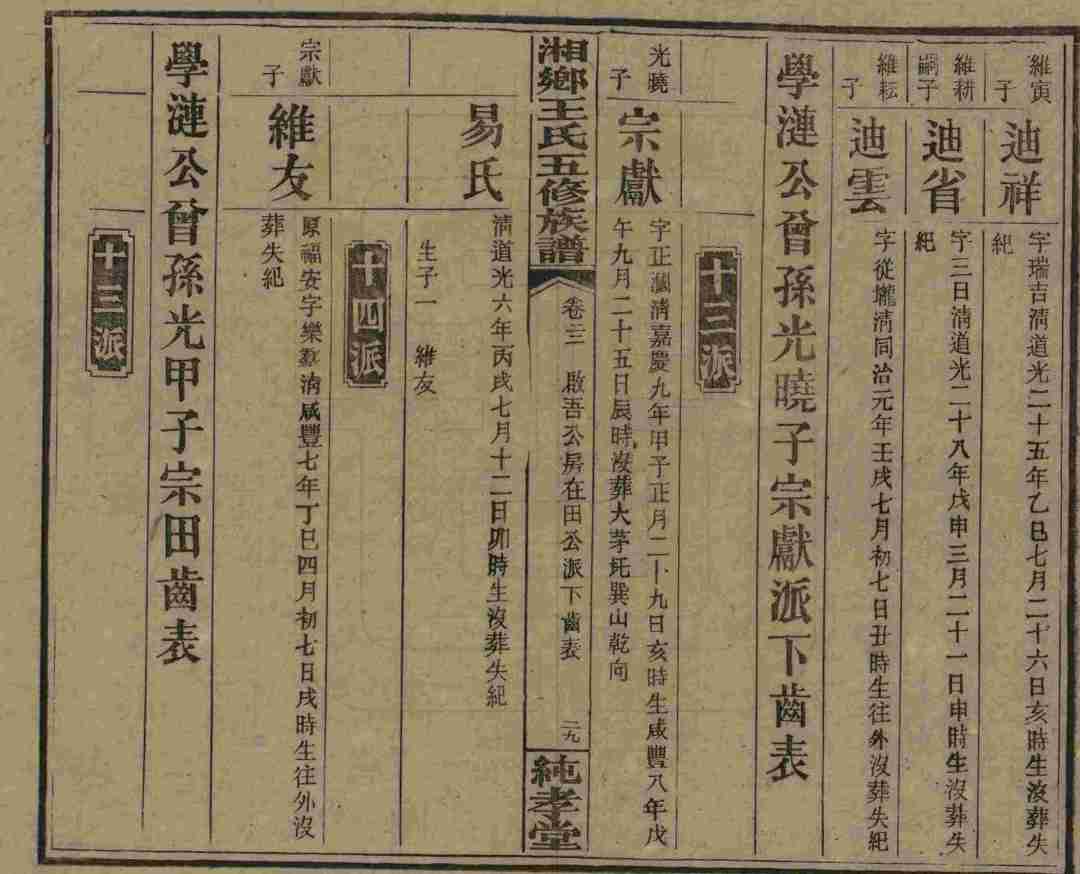 維寅子
迪祥
字瑞吉淸道光二十五年乙巳七月二十六日亥時生沒葬失
紀
維耕嗣子
迪省
字三日淸道光二十八年戊申三月二十一日申時生沒葬失
紀
維耘子
迪雲
字從壠淸同治元年壬戌七月初七日丑時生往外沒葬失紀
學漣公曾孫光曉子宗獻派下齒表
十三派
光曉子
宗獻
字正瀾淸嘉慶九年甲子正月二十九日亥時生咸豐八年戊
午九月二十五日辰時沒葬大茅坵巽山乾向
湘鄉王氏五修族譜
卷三 啟吾公房在田公派下齒表 二九
純孝堂
易氏
淸道光六年丙戌七月十二日卯時生沒葬失紀
生子一 維友
十四派
宗獻子
維友
原福安字樂羣淸咸豐七年丁巳四月初七日戌時生往外沒
葬失紀
學漣公曾孫光甲子宗田齒表
十三派